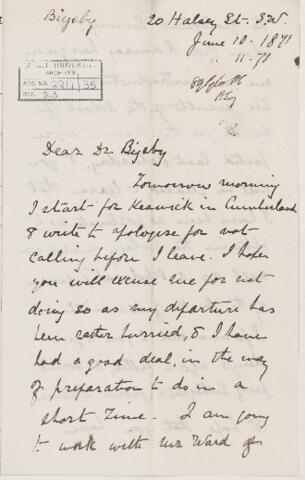 Bigsby
20 Halsey St. S.W.
June 10 - 1871
11 - 71
ARCHIVES
ACC. NO. 2211 35
REF. 23
Dear Dr. Bigsby
Tomorrow morning
I start for Keswick in Cumberland
& write to apologise for not
calling before I leave. I hope
you will excuse me for not
doing so as my departure has
been rather hurried, & I have
had a good deal, in the way
of preparation to do in a
short time. I am going
to work with Mr Ward of